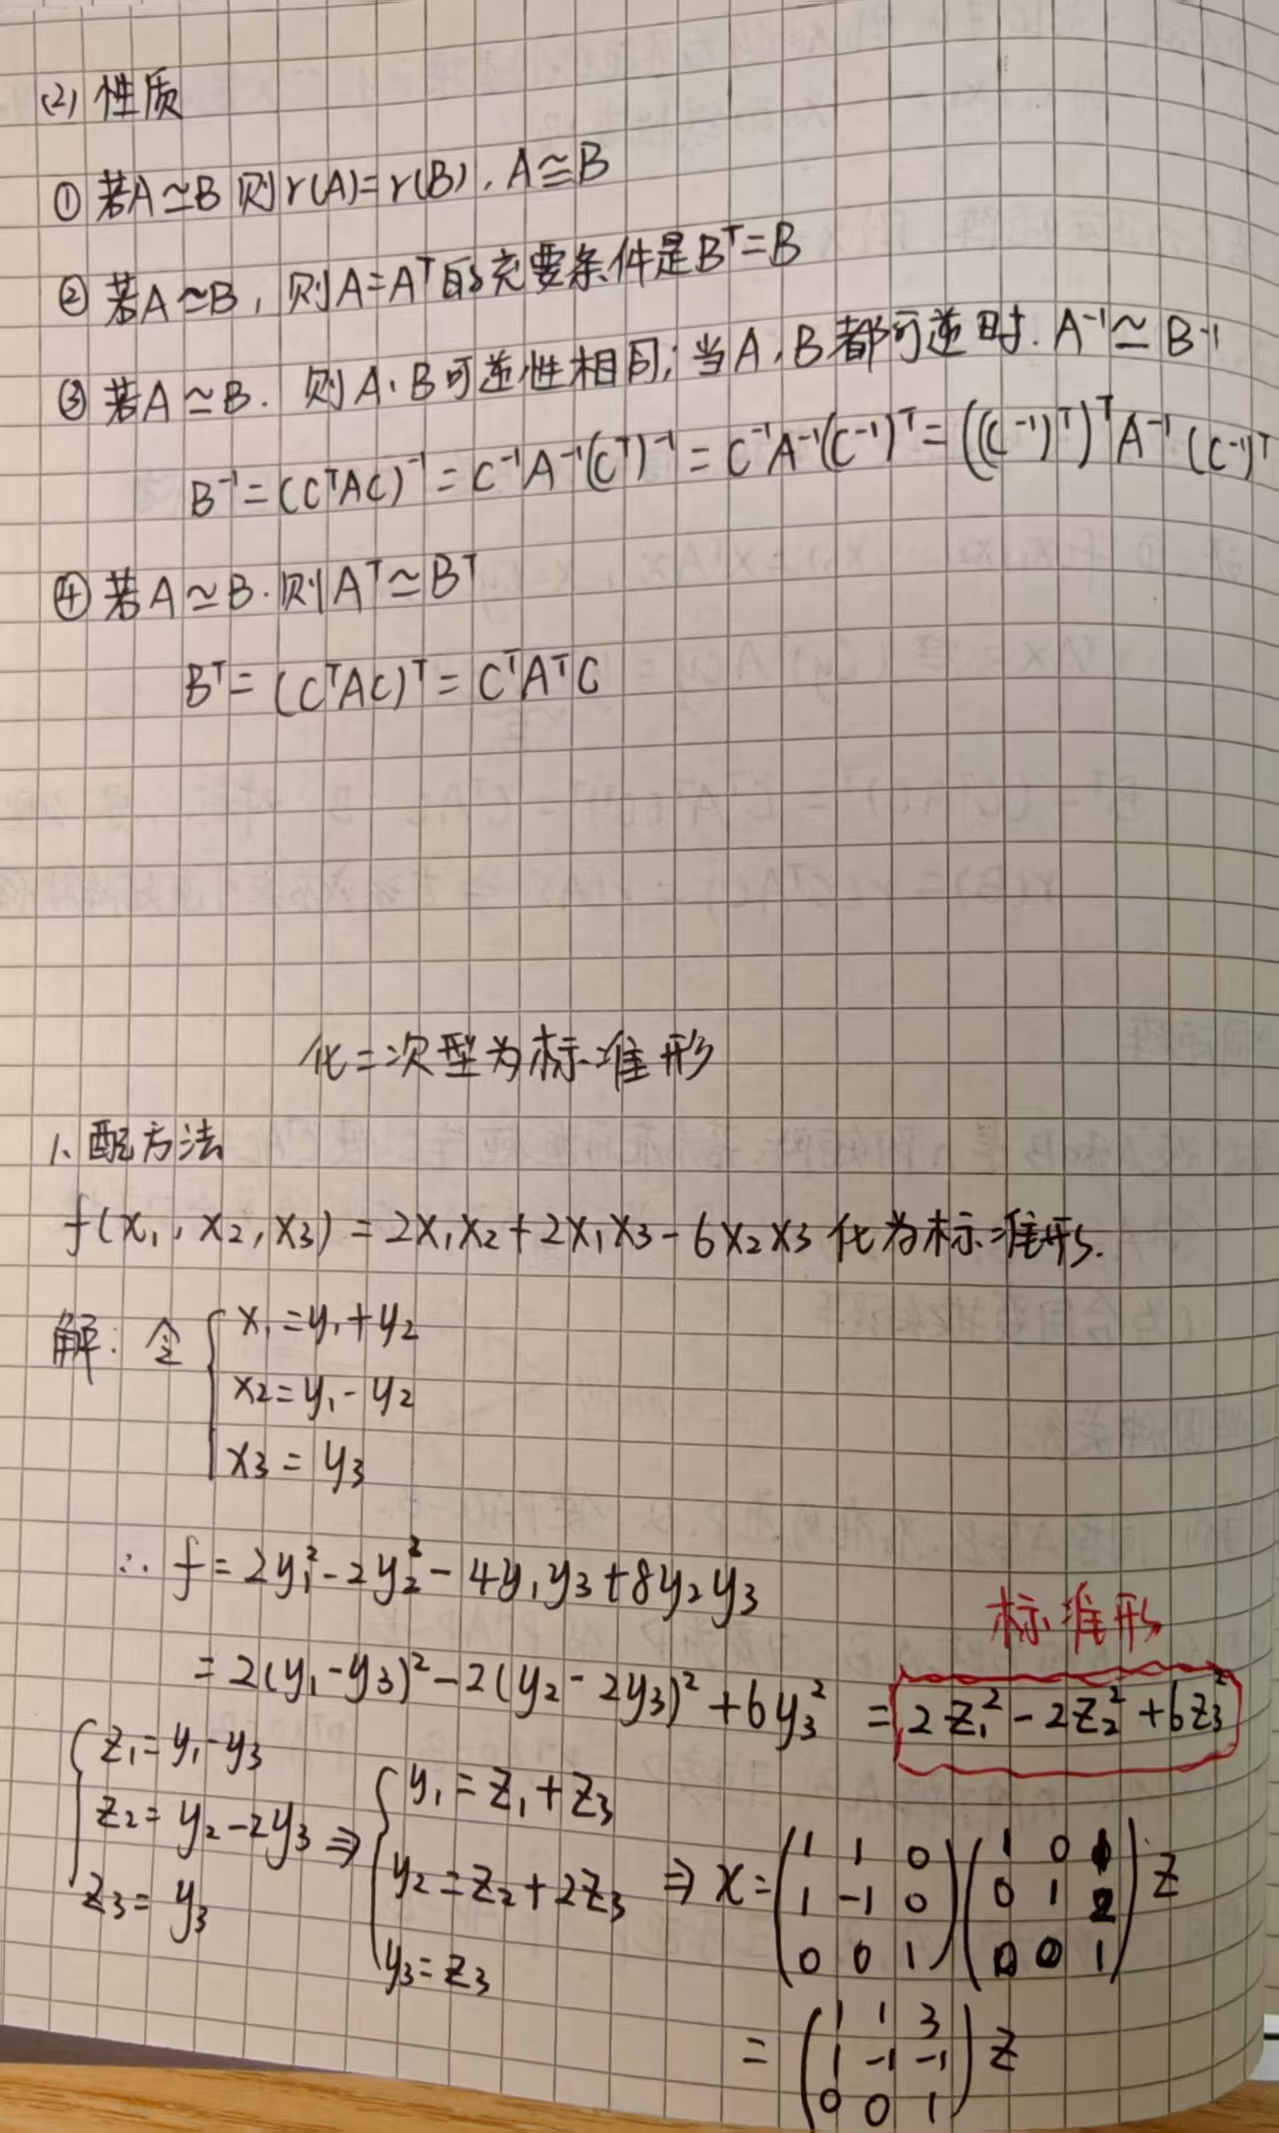 (2) 性质
① 若A≃B 则r(A)=r(B), A≅B
② 若A≃B, 则A=Aᵀ的充要条件是Bᵀ=B
③ 若A≃B. 则A、B可逆性相同; 当A、B都可逆时. A⁻¹≃B⁻¹
B⁻¹=(CᵀAC)⁻¹=C⁻¹A⁻¹(Cᵀ)⁻¹=C⁻¹A⁻¹(C⁻¹)ᵀ=((C⁻¹)ᵀ)ᵀA⁻¹(C⁻¹)ᵀ
④ 若A≃B. 则Aᵀ≃Bᵀ
Bᵀ=(CᵀAC)ᵀ=CᵀAᵀC
化二次型为标准形
1、配方法
f(x₁,x₂,x₃)=2x₁x₂+2x₁x₃-6x₂x₃ 化为标准形.
解: 令 { x₁=y₁+y₂
x₂=y₁-y₂
x₃=y₃
∴ f=2y₁²-2y₂²-4y₁y₃+8y₂y₃
标准形
=2(y₁-y₃)²-2(y₂-2y₃)²+6y₃² = 2z₁²-2z₂²+6z₃²
{ z₁=y₁-y₃
z₂=y₂-2y₃
z₃=y₃
⇒ { y₁=z₁+z₃
y₂=z₂+2z₃
y₃=z₃
⇒ x= (1 1 0) (1 0 1) z
(1 -1 0) (0 1 2)
(0 0 1) (0 0 1)
= (1 1 3) z
(1 -1 -1)
(0 0 1)